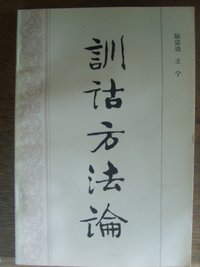 訓诂方法論
陆宗达 王宁